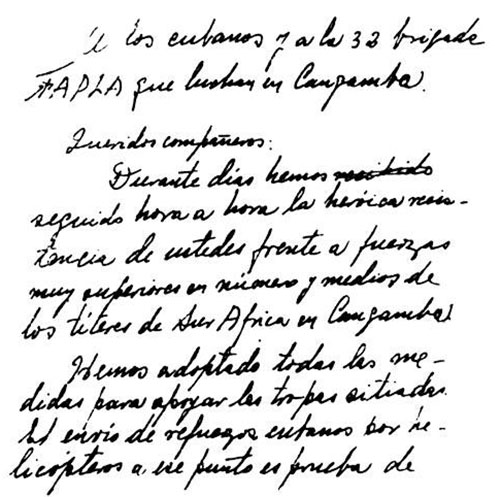 A los cubanos y a la 32 brigada
FAPLA que luchan en Cangamba.
Queridos compañeros:
Durante días hemos recibido
seguido hora a hora la heróica resis-
tencia de ustedes frente a fuerzas
muy superiores en número y medios de
los títeres de Sur Africa en Cangamba
Hemos adoptado todas las me-
didas para apoyar las tropas sitiadas.
El envío de refuerzos cubanos por he-
licópteros a ese punto es prueba de